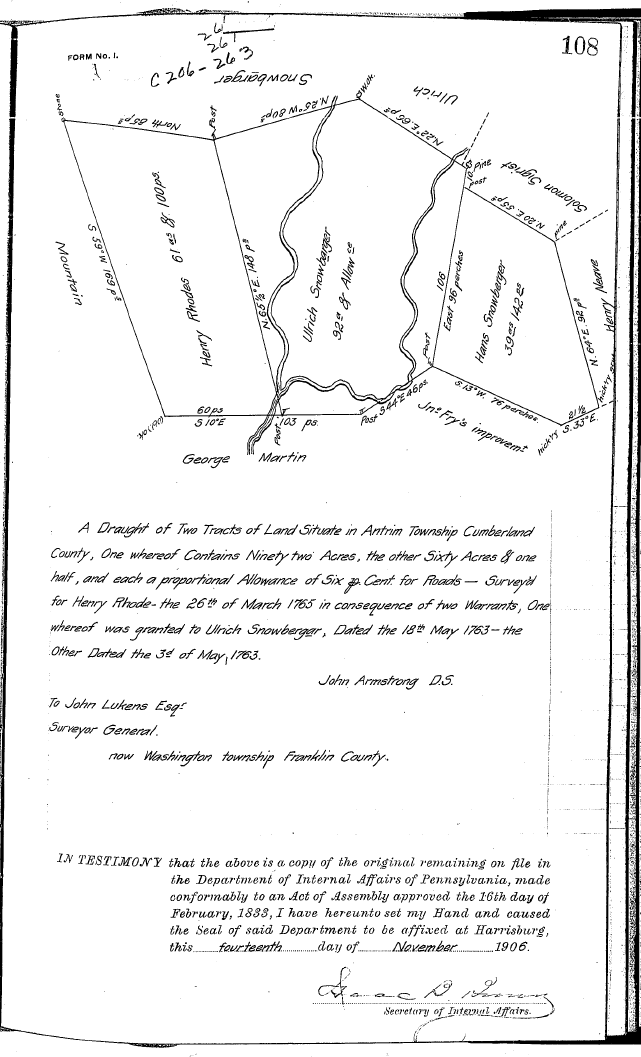 108
FORM No. 1.
26
26
C 206-263
Snowbarger
Ulrich
Solomon Sigrist
Stone
North 85 pˢ
Post
N. 25° W. 80 pˢ
W. Ok.
N. 22° E. 66 pˢ
Pine
10
Post
N. 20 E. 55 pˢ
pine
Mountain
S 59° W. 169 pˢ
Henry Rhodes 61 aˢ & 100 ps.
N. 65½° E. 148 pˢ
Ulrich Snowberger
92 ª & Allow ce
106
East 96 perches
Hans Snowberger
39 aˢ 142 aˢ
N. 64° E. 92 pˢ
Henry Neave
Post
60 ps
S 10° E
103 ps.
Post
Post
S 44° E 46 ps.
S. 13° W. 76 perches.
Jnº Fry's improvemᵗ
hick'ry
21½
S. 33° E.
George Martin
A Draught of Two Tracts of Land Situate in Antrim Township Cumberland
County, One whereof Contains Ninety two Acres, the other Sixty Acres & one
half, and each a proportional Allowance of Six p. Cent for Roads — Survey'd
for Henry Rhode - the 26th of March 1765 in consequence of two Warrants, One
whereof was granted to Ulrich Snowbergar, Dated the 18th May 1763 - the
Other Dated the 3d of May, 1763.
John Armstrong D.S.
To John Lukens Esqr
Surveyor General.
now Washington township Franklin County.
IN TESTIMONY that the above is a copy of the original remaining on file in
the Department of Internal Affairs of Pennsylvania, made
conformably to an Act of Assembly approved the 16th day of
February, 1833, I have hereunto set my Hand and caused
the Seal of said Department to be affixed at Harrisburg,
this fourteenth day of November 1906.
Isaac B. Brown
Secretary of Internal Affairs.